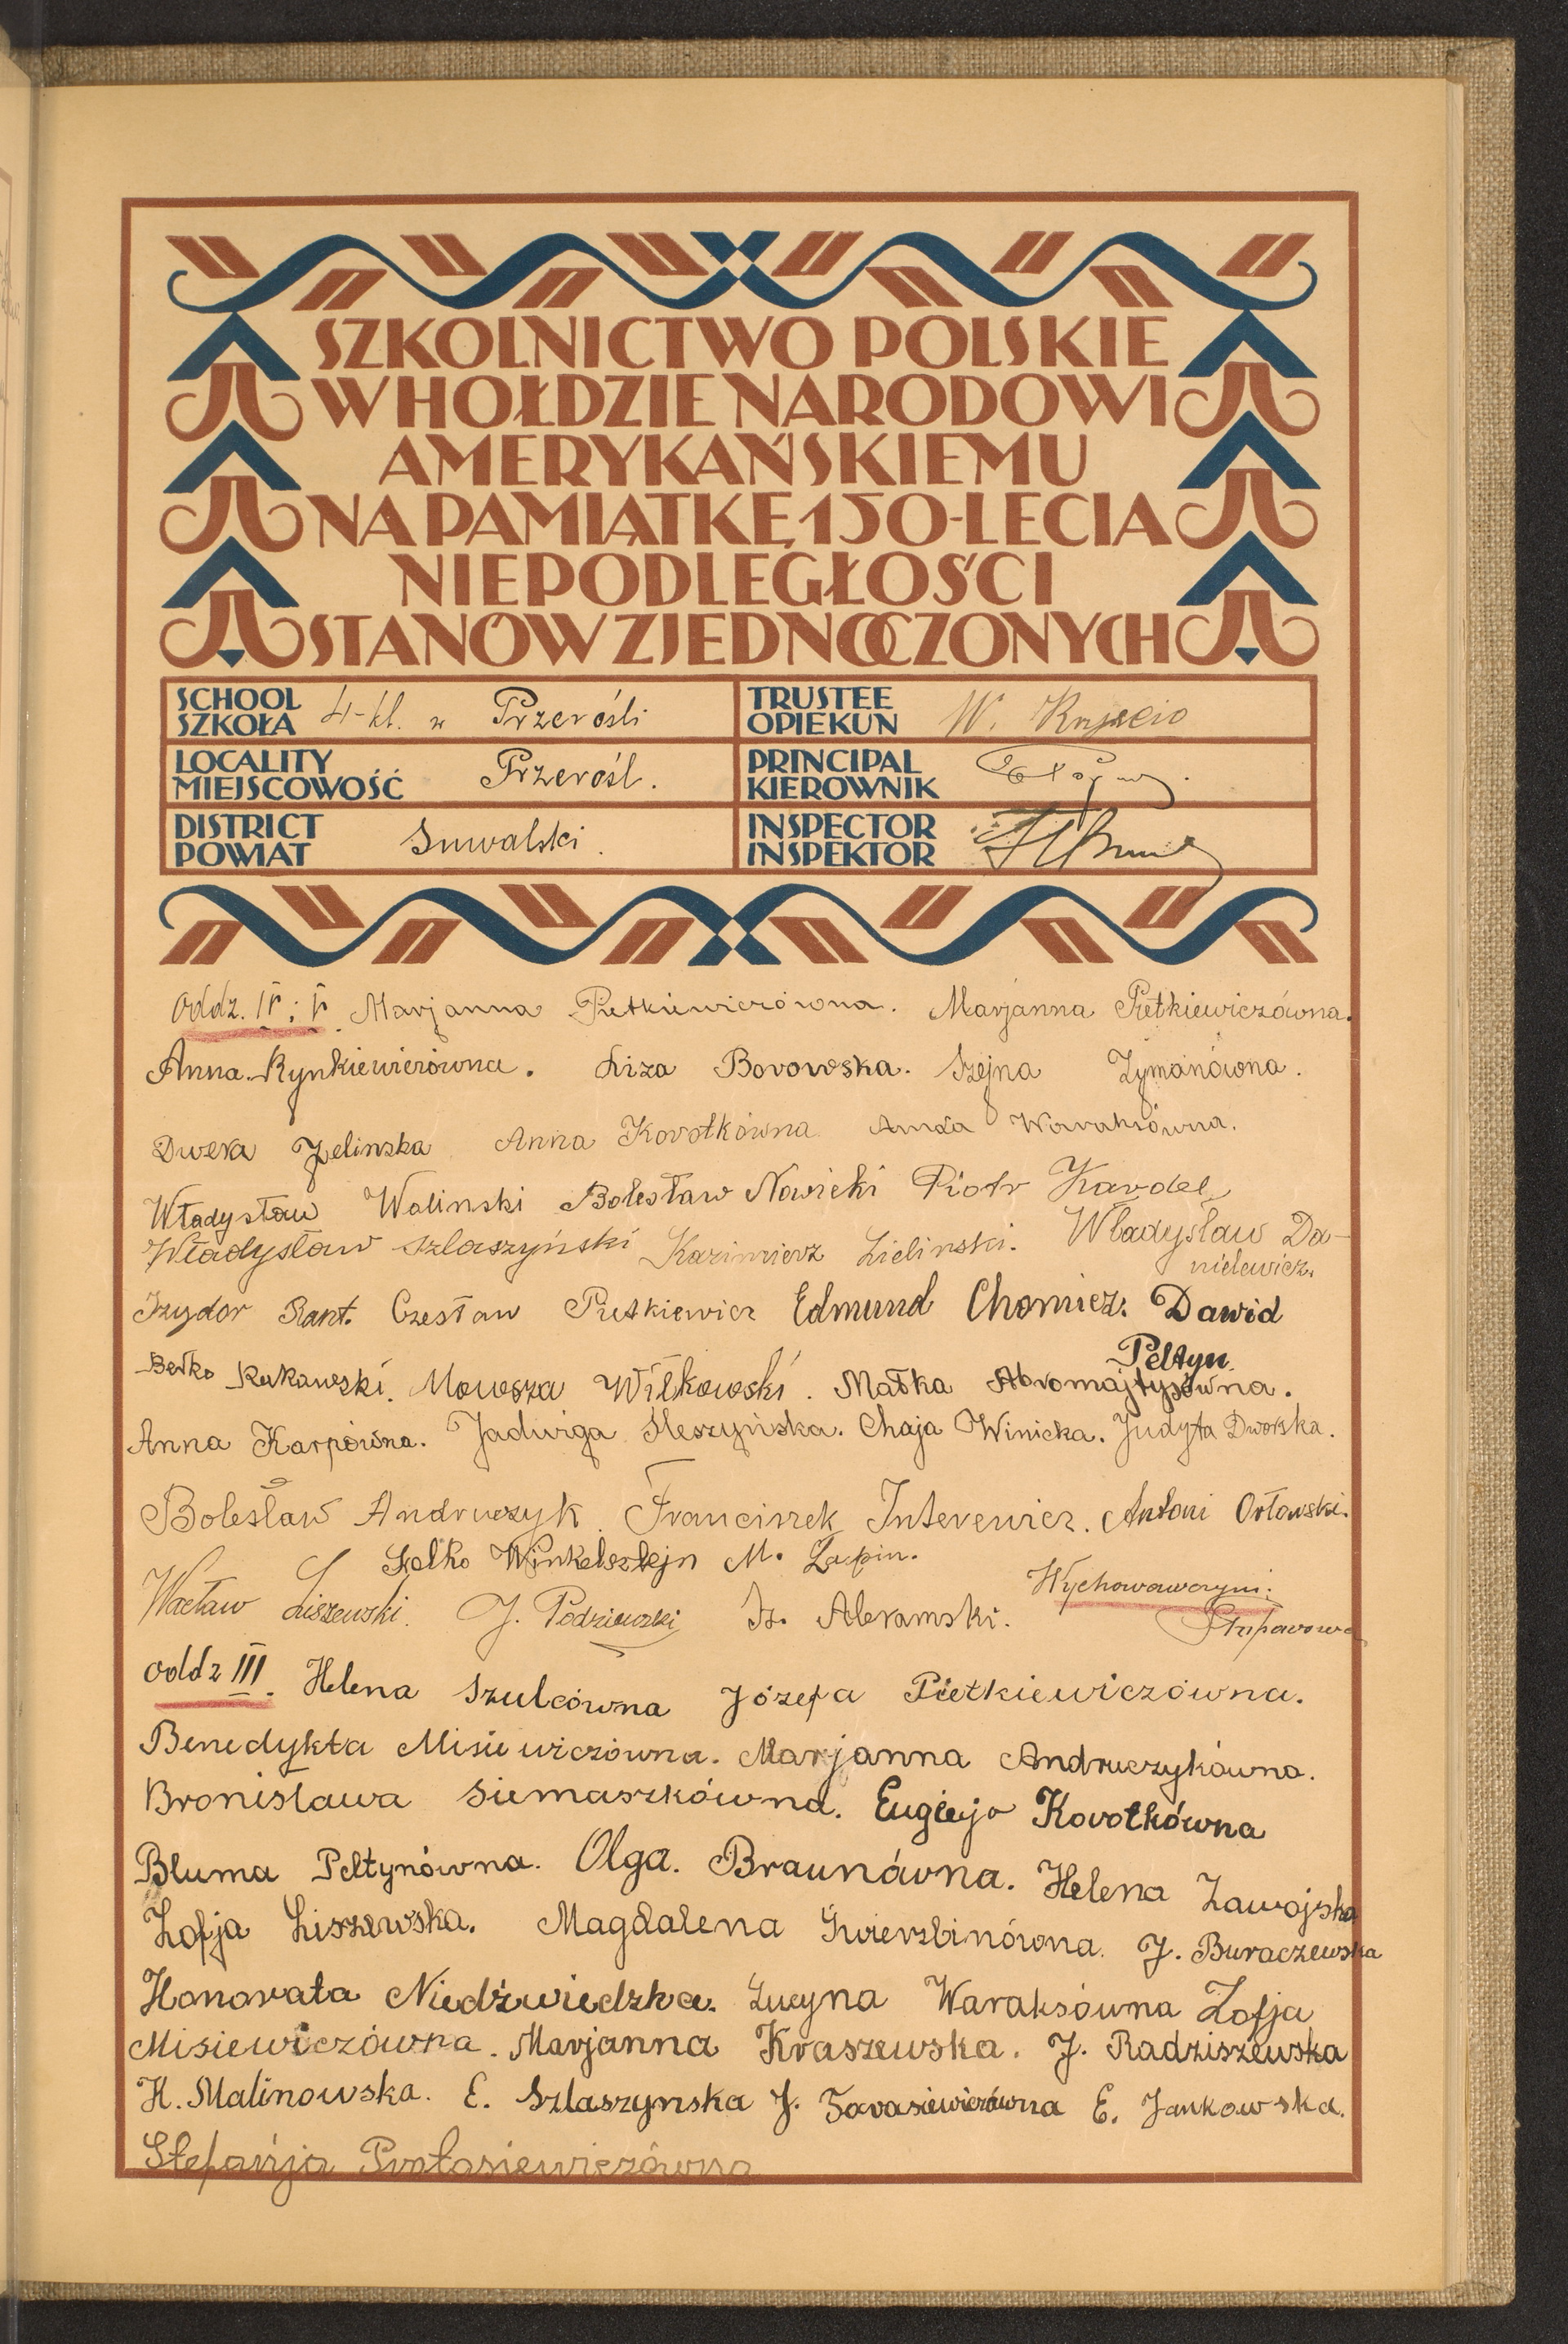 SZKOLNICTWO POLSKIE
W HOŁDZIE NARODOWI
AMERYKAŃSKIEMU
NA PAMIĄTKĘ 150-LECIA
NIEPODLEGŁOŚCI
STANÓW ZJEDNOCZONYCH
SCHOOL
SZKOŁA 4-kl. w Przerośli
TRUSTEE
OPIEKUN W.
LOCALITY
MIEJSCOWOŚĆ Przerośl.
PRINCIPAL
KIEROWNIK
DISTRICT
POWIAT Suwalski.
INSPECTOR
INSPEKTOR
Oddz. IV i V. Marjanna Pietkiewiczówna. Marjanna Pietkiewiczówna.
Anna Rynkiewiczówna. Liza Borowska. Szejna Zymanówna.
Dwera Zelinska Anna Korotkówna Anna
Władysław Walinski Bolesław Nowicki Piotr Kardel
Władysław Szlaszyński Kazimierz Zielinski. Władysław Da-
nielewicz.
Izydor Rant. Czesław Pietkiewicz Edmund Chomicz. Dawid
Peltyn.
Berko Rakawski. Mowsza Wilkowski. Małka Abromajtysówna.
Anna Karpówna. Jadwiga Sleszyńska. Chaja Winicka. Judyta Dworska.
Bolesław Andruczyk. Franciszek Interewicz. Antoni Orłowski.
Winkelsztejn M. Lapin.
Wacław Liszewski. J. Podziewski Iz. Abramski. Wychowawczyni:
oddz III. Helena Szulcówna Józefa Pietkiewiczówna.
Benedykta Misiewiczówna. Marjanna Andruczykówna.
Bronisława Siemaszkówna. Eugienja Korotkówna
Bluma Peltynówna. Olga. Braunówna. Helena Zawojska
Zofja Liszewska. Magdalena Gwierzbinówna. J. Buraczewska
Honorata Niedźwiedzka. Lucyna Waraksówna Zofja
Misiewiczówna. Marjanna Kraszewska. J. Radziszewska
H. Malinowska. E. Szlaszynska J. Tarasiewiczówna E. Jankowska.
Stefanja Protasiewiczówna